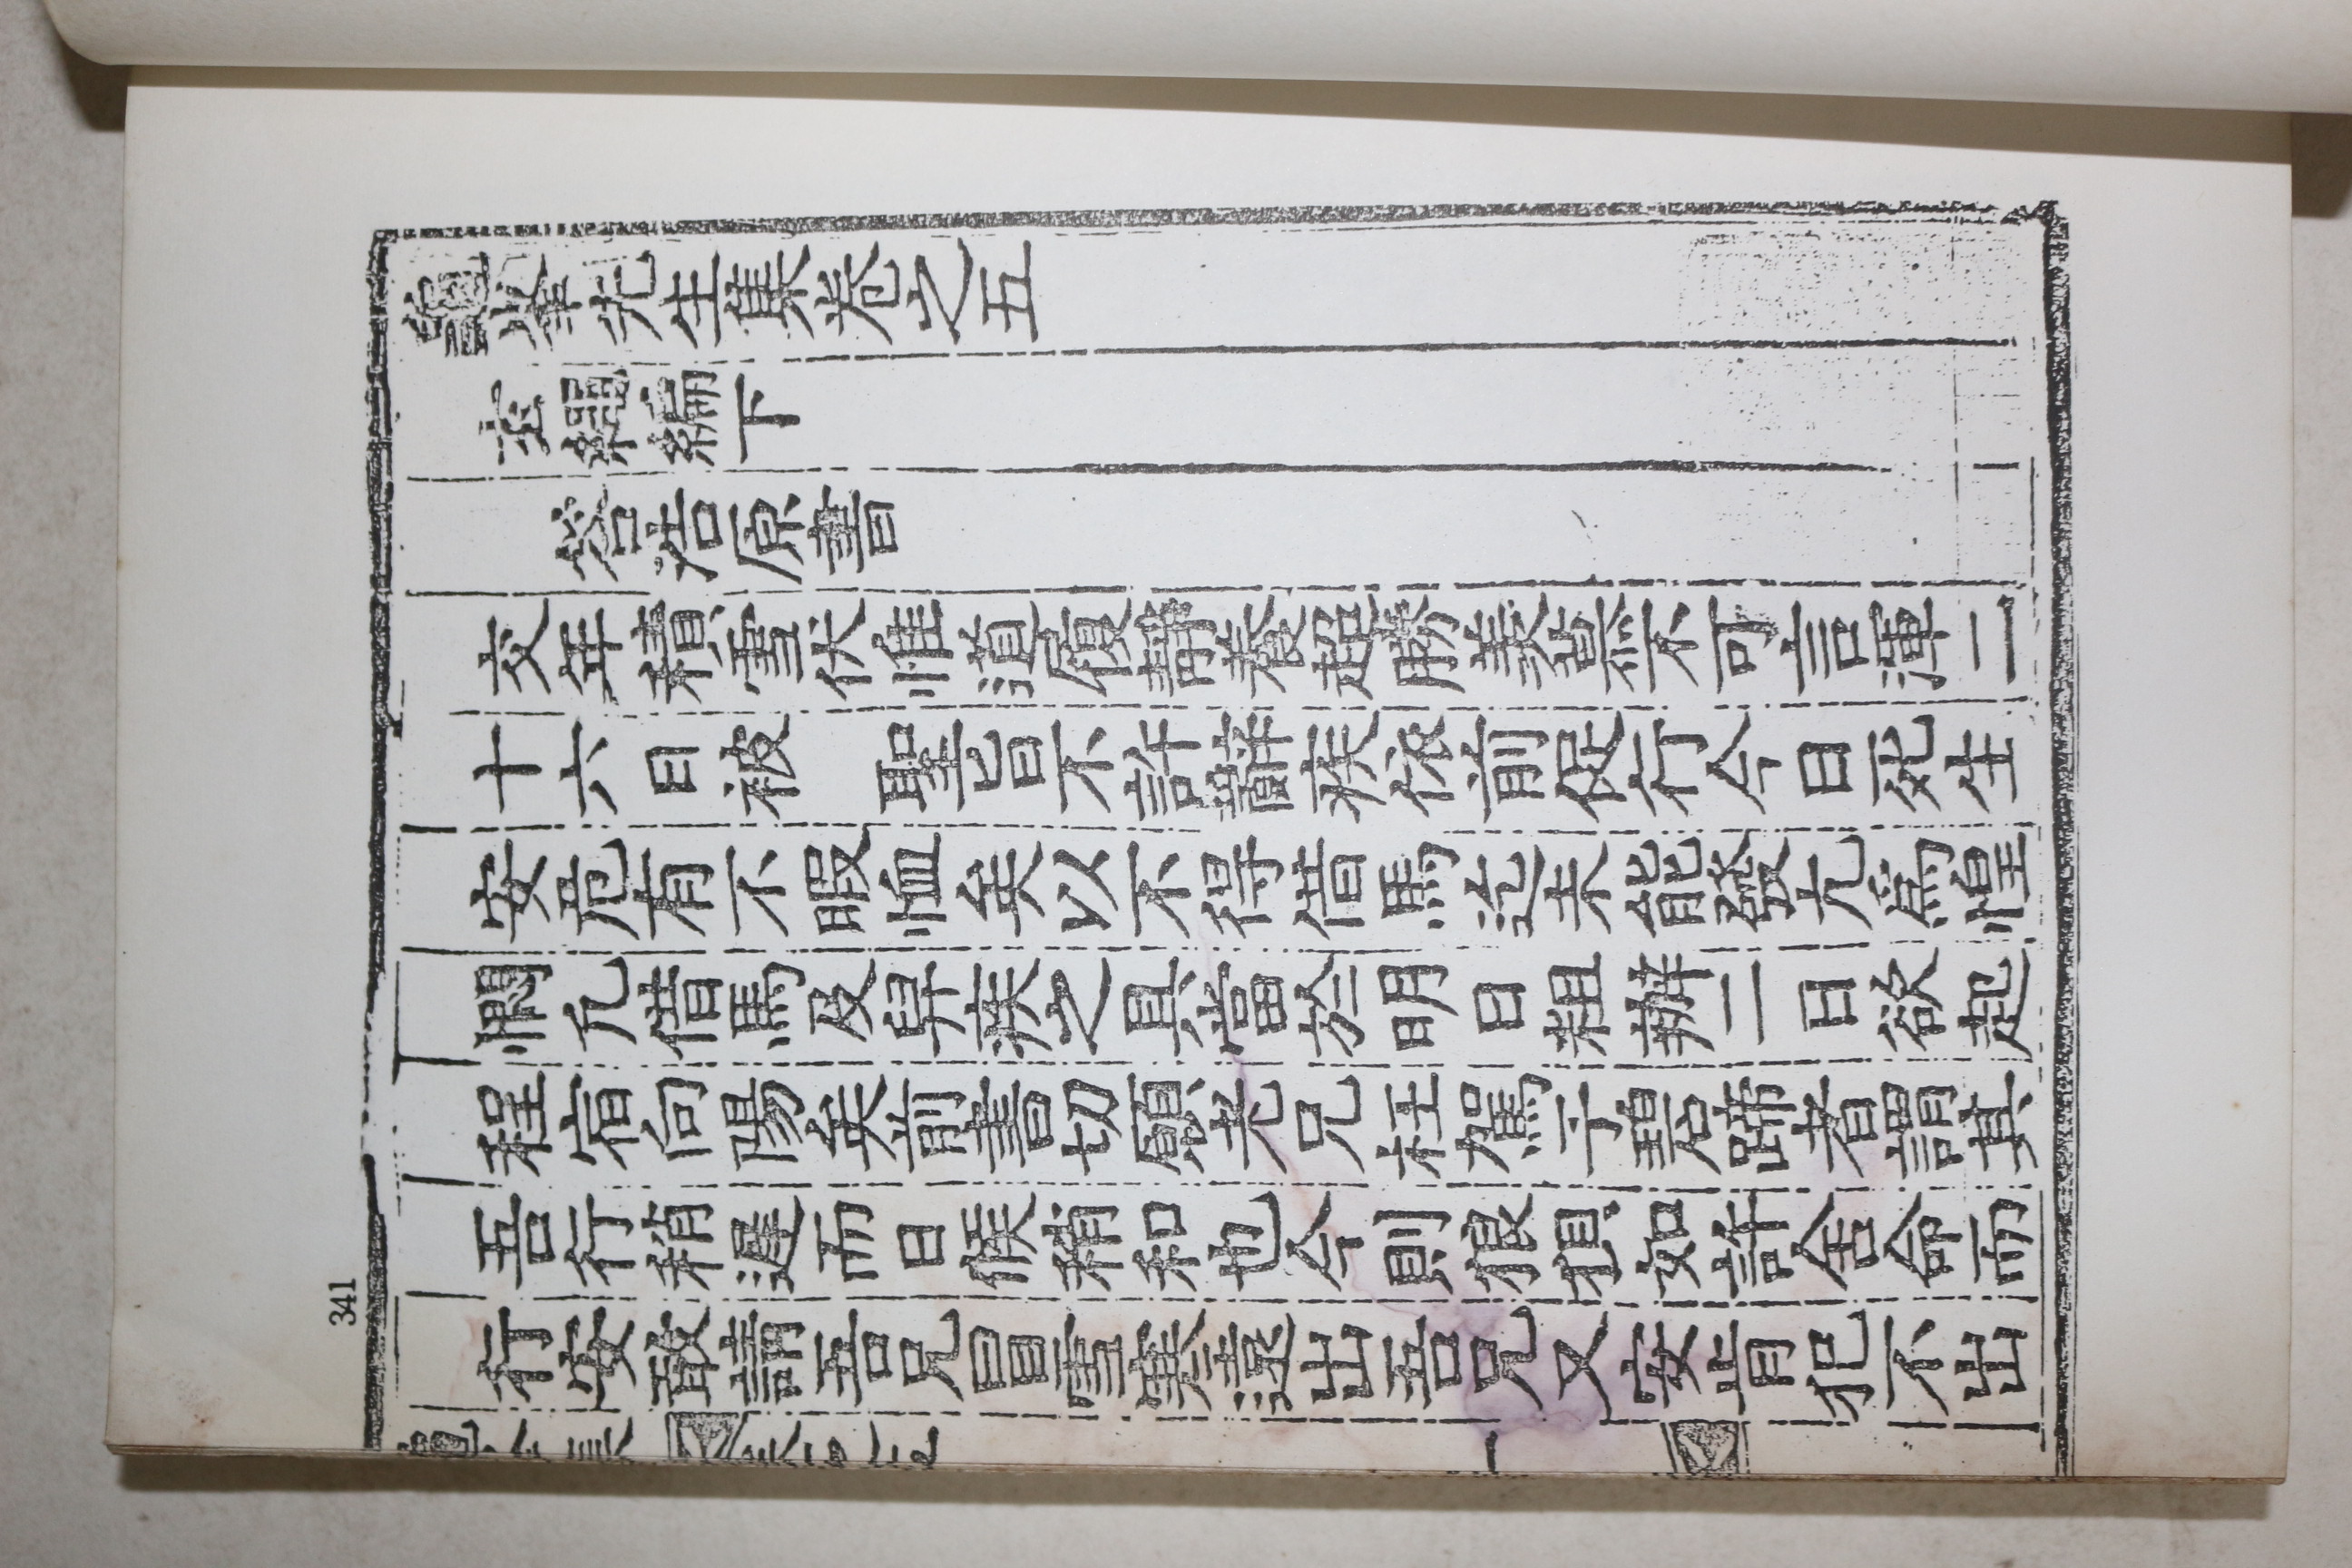 341
龜峯先生集卷之五
玄繩編下
答浩原書
交年積雪伏惟道履靜養超勝羨慕不可言渾二
十六日被 聖旨不許辭疾依前促行今日死生
安危有不暇恤矣以不得借馬迄未能發尤爲惶
憫凡借馬及舁疾之具當於明日粗辦二日欲起
程宿向陽矣前書切願老兄枉駕于碧蹄者謂其
吾行稍遲而日候稍和也今則狼狽如許舍命而
行安敢請吾兄冒雪寒遠出吾兄又安肯犯不出